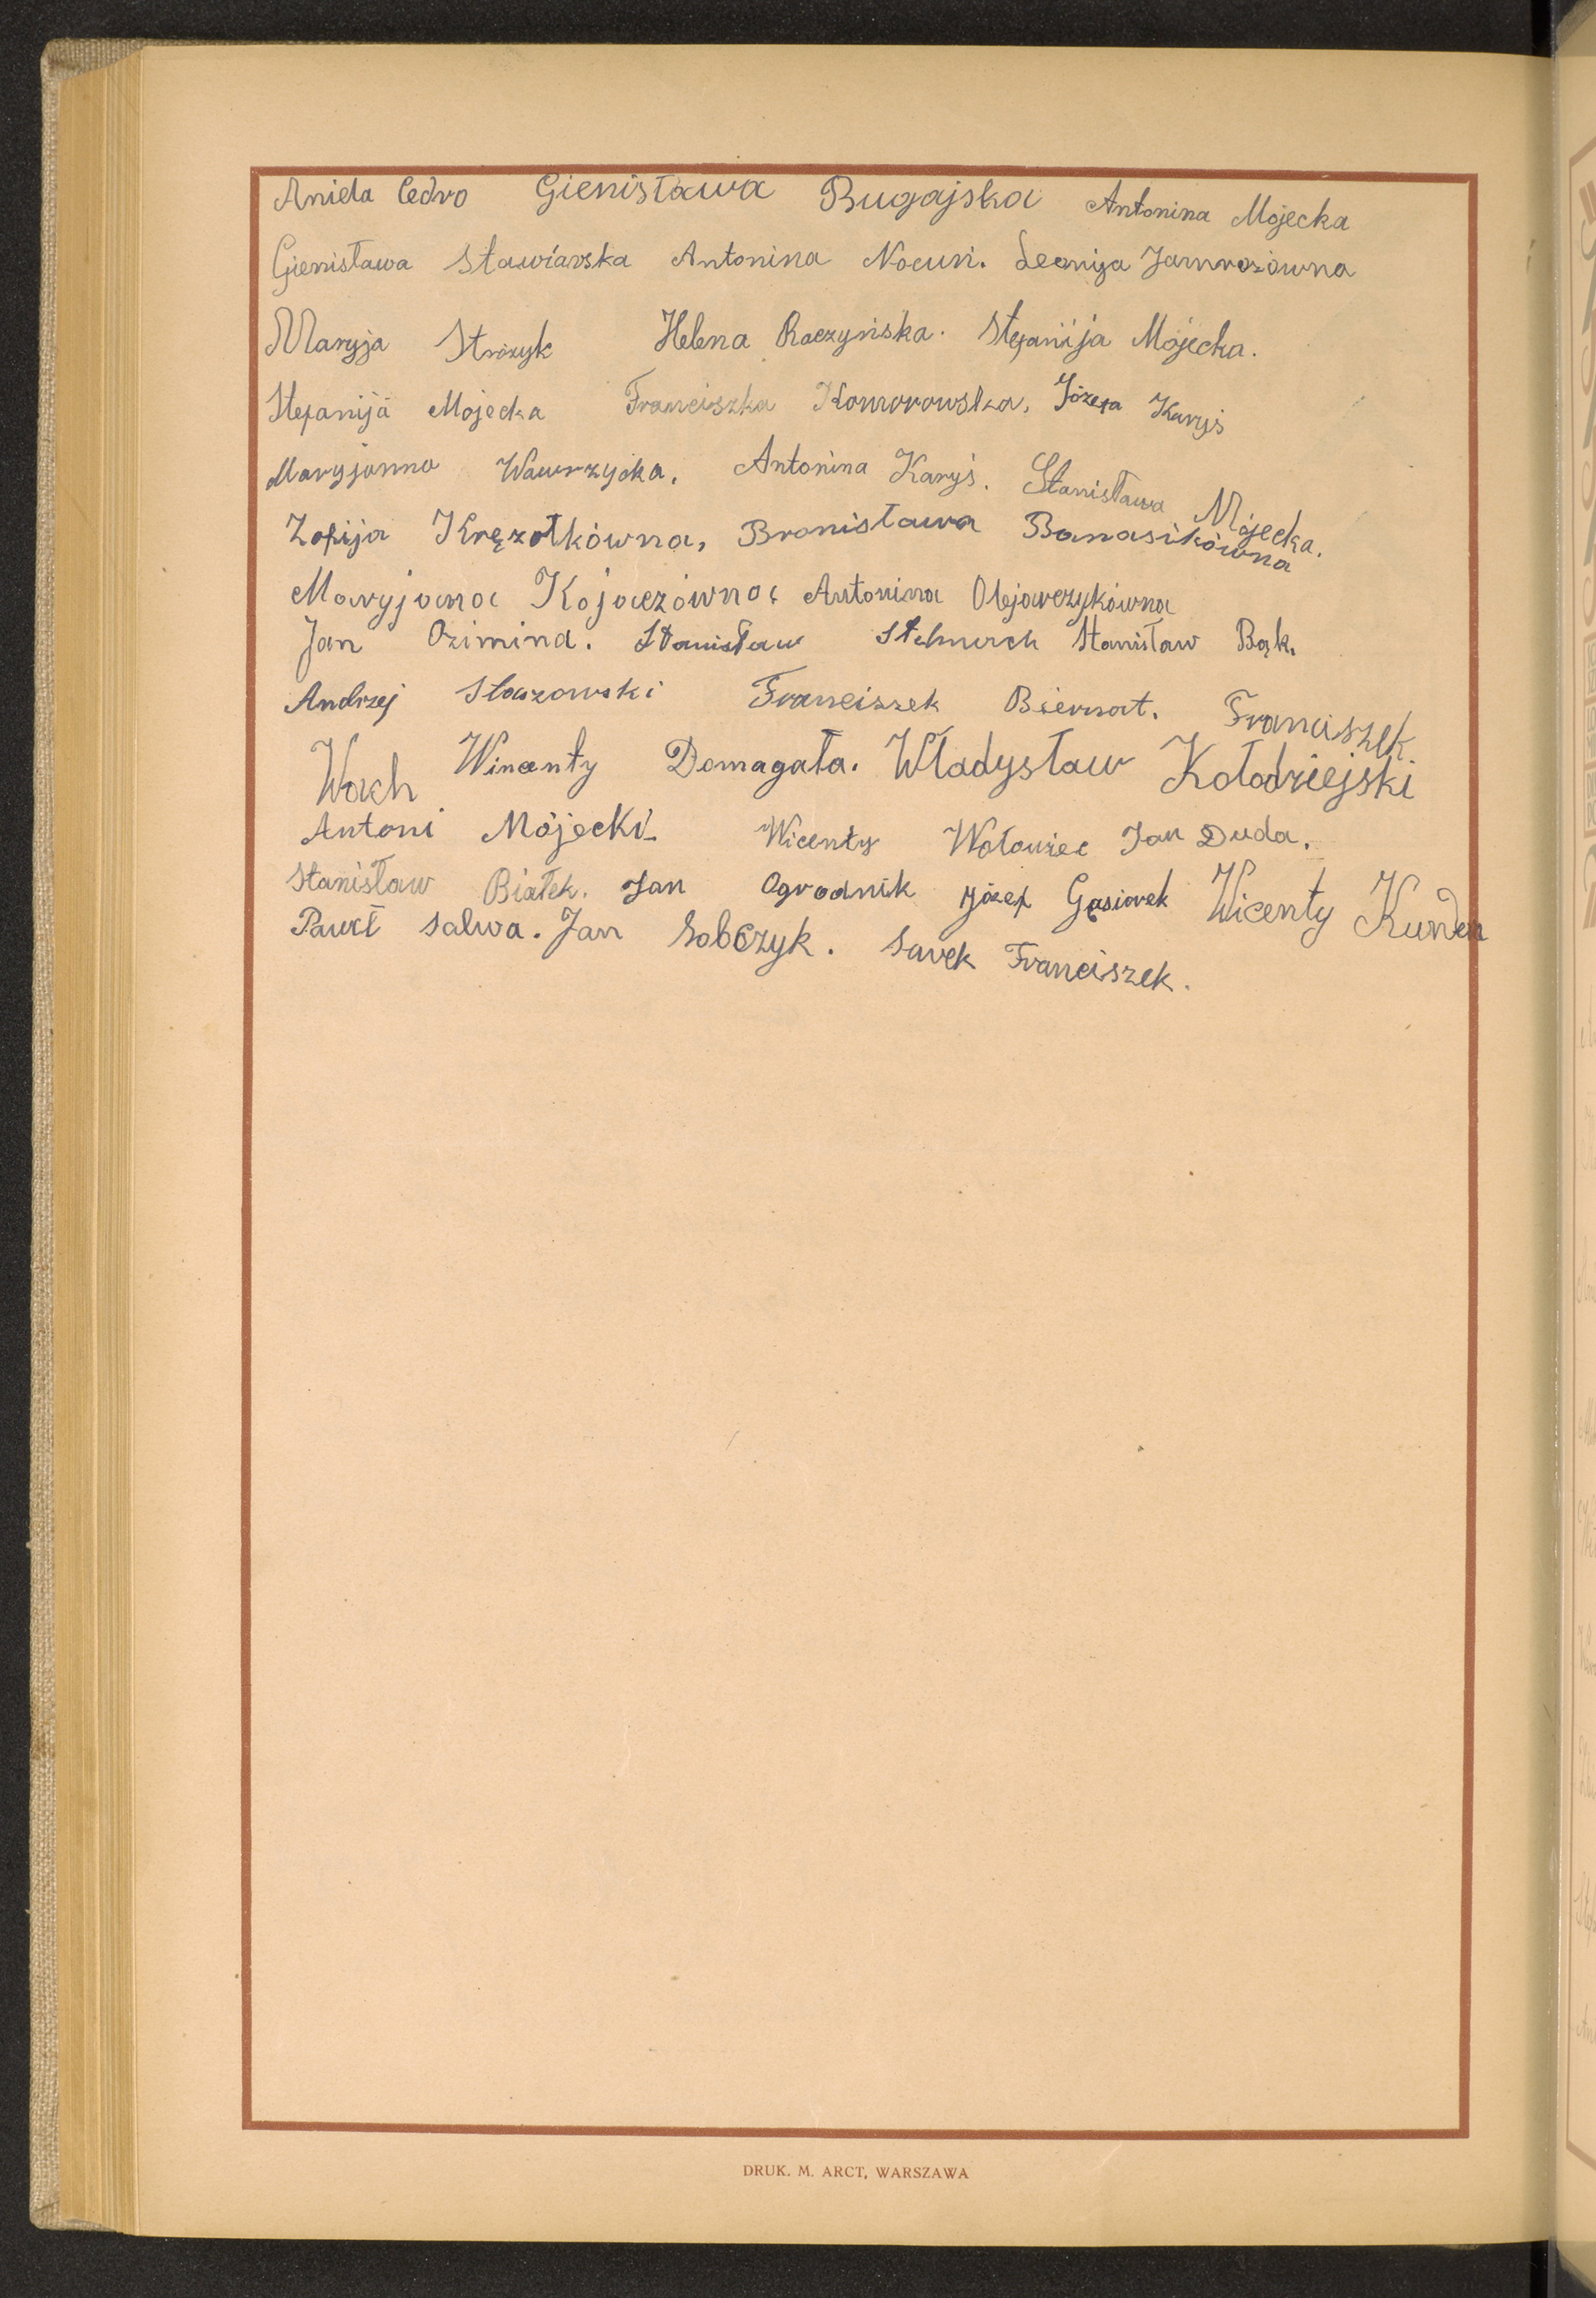 Aniela Cedro Gienisława Bugajska Antonina Mojecka
Gienisława Stawiarska Antonina Nocuń. Leonija Jamrozówna
Maryja Stróżyk Helena Raczyńska. Stefanija Mójecka.
Stefanija Mojecka Franciszka Komorowska, Józefa Karyś
Maryjanna Wawrzycka, Antonina Karyś. Stanisława Mójecka.
Zofija Kręzołkówna, Bronisława Banasikówna
Maryjana Kojaczówna Antonina Olejarczykówna
Jan Ozimina. Stanisław Stelmach Stanisław Bąk.
Andrzej Staszowski Franciszek Biernat. Franciszek
Wach Wincenty Domagała. Władysław Kołodziejski
Antoni Mójecki Wicenty Wołowiec Jan Duda.
Stanisław Białek. Jan Ogrodnik Józef Gąsiorek Wicenty Kundera
Paweł Salwa. Jan Sobczyk. Savek Franciszek.
DRUK. M. ARCT, WARSZAWA